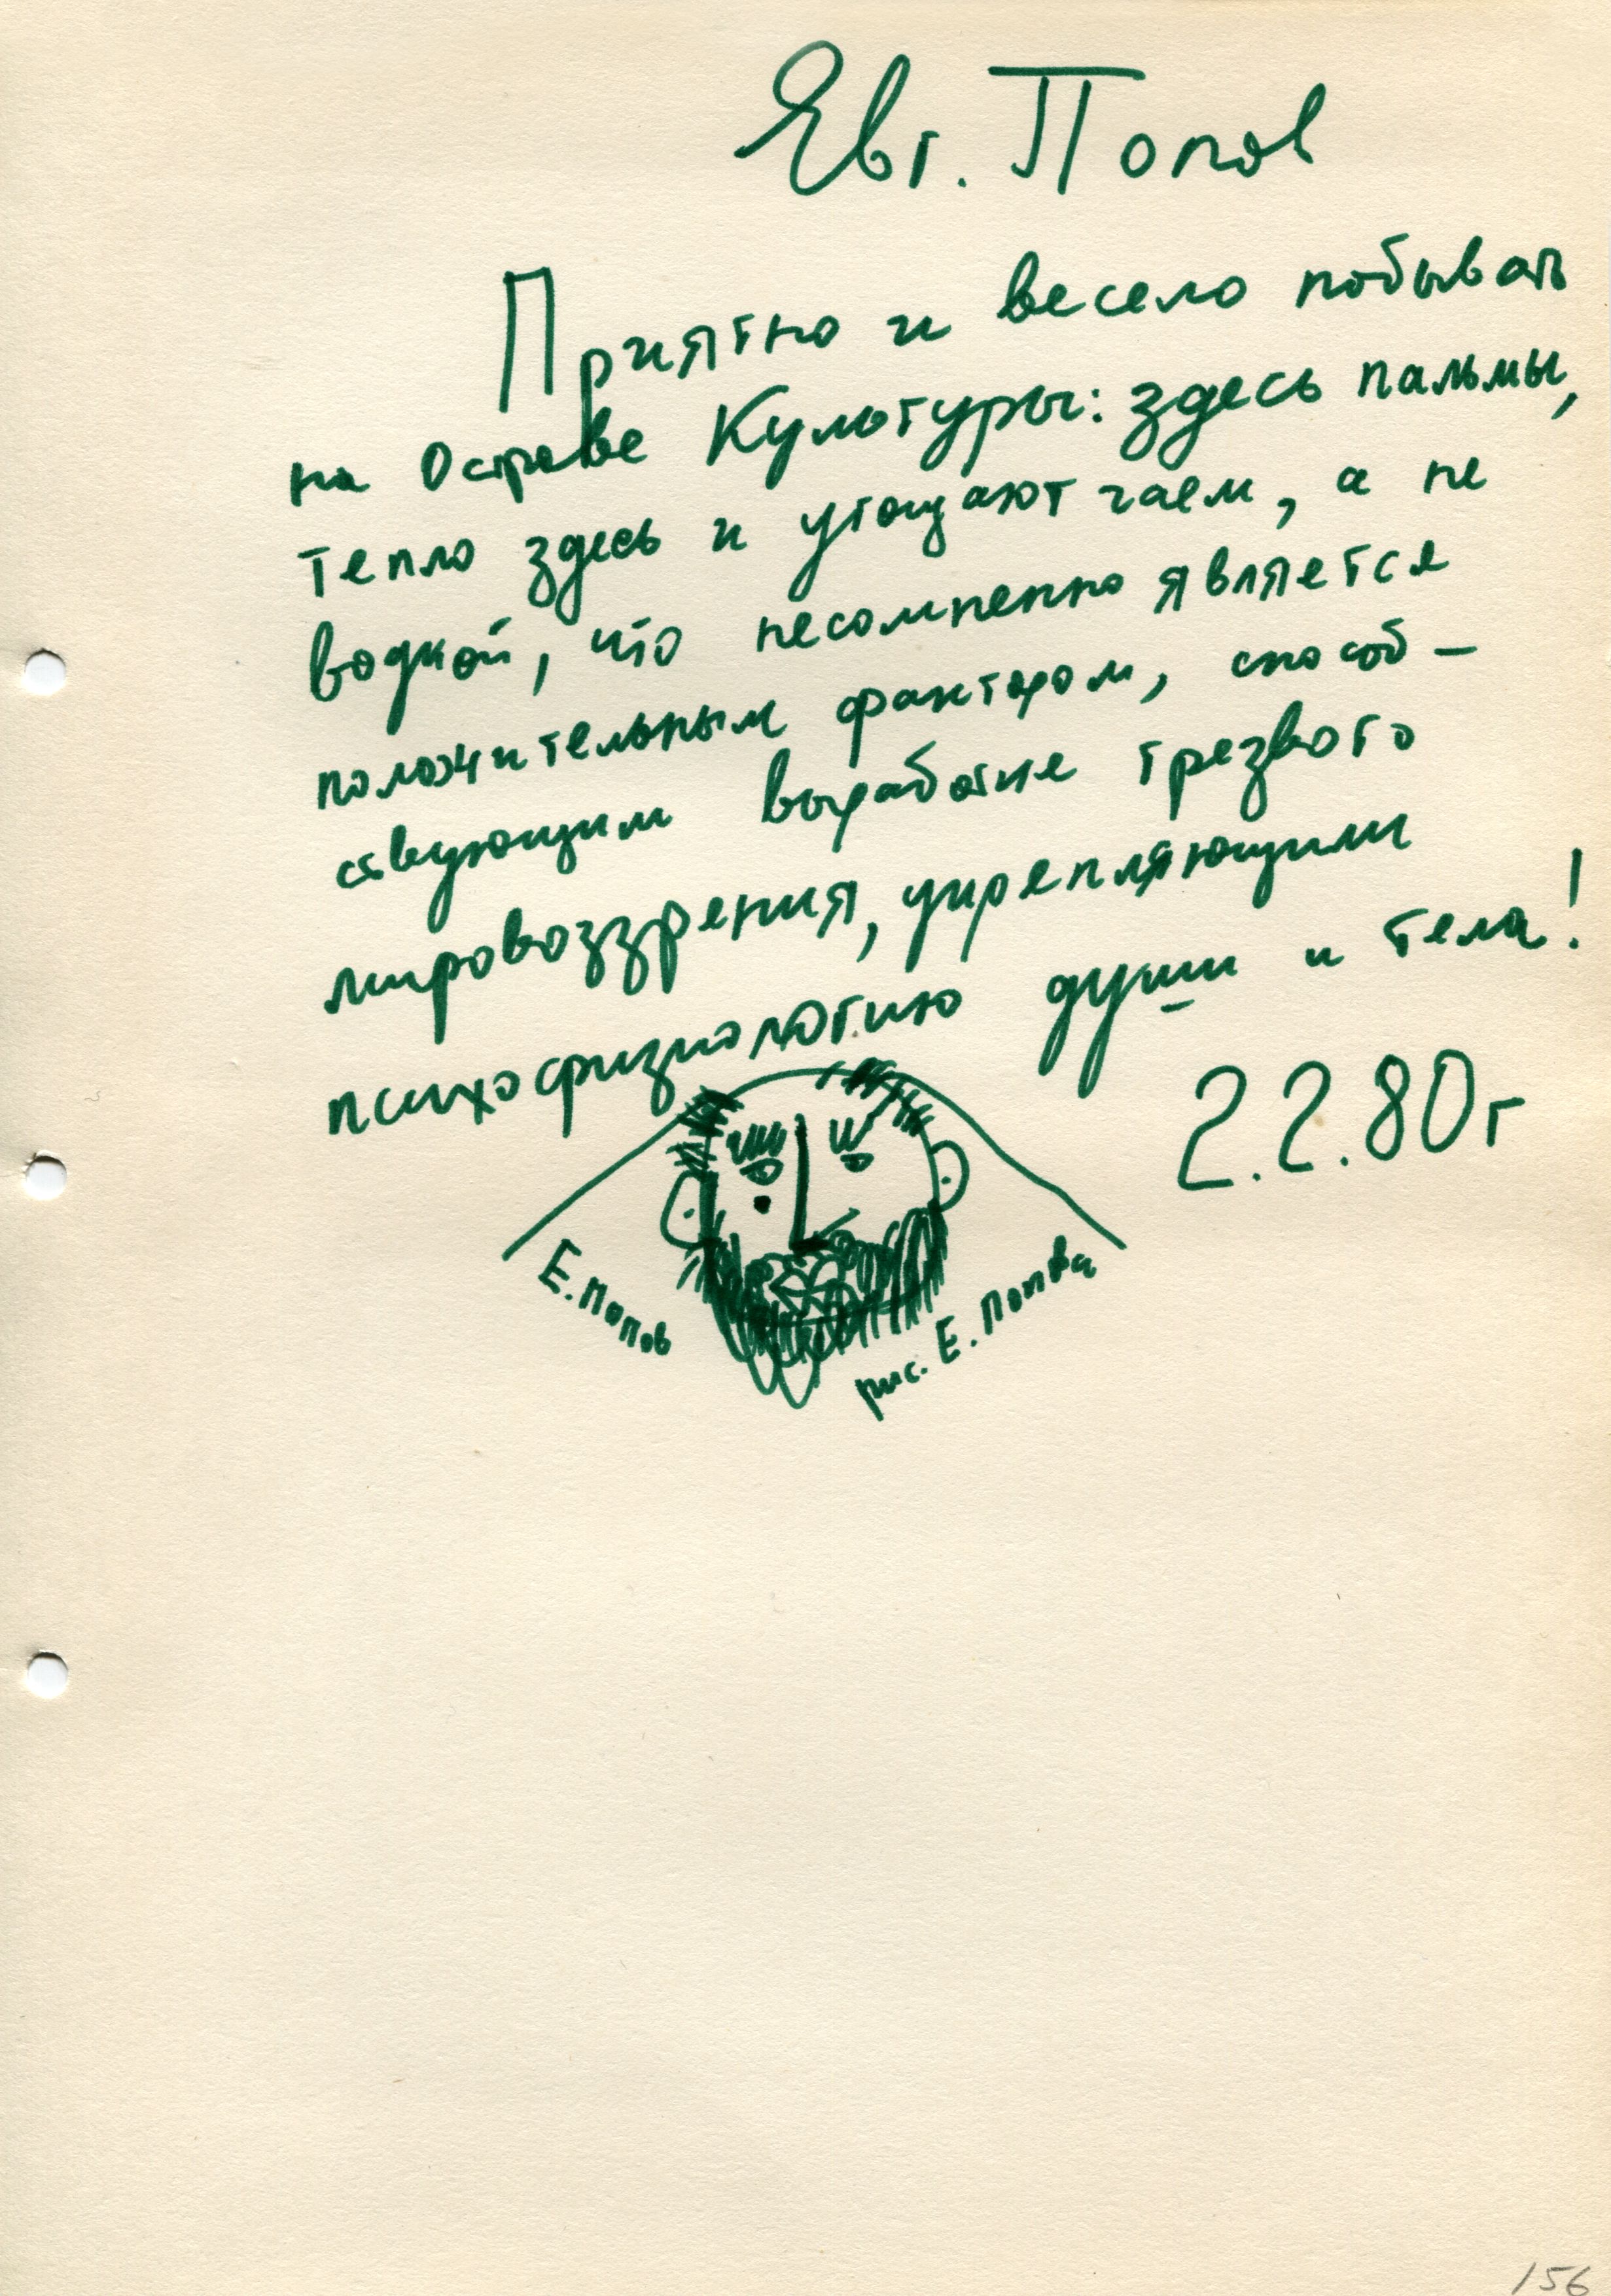 Евг. Попов
Приятно и весело побывать
на Острове Культуры: здесь пальмы,
тепло здесь и угощают чаем, а не
водкой, что несомненно является
положительным фактором, способ-
ствующим выработке трезвого
мировоззрения, укрепляющими
психофизиологию души и тела!
2.2.80г
Е. Попов
рис. Е. Попова
156